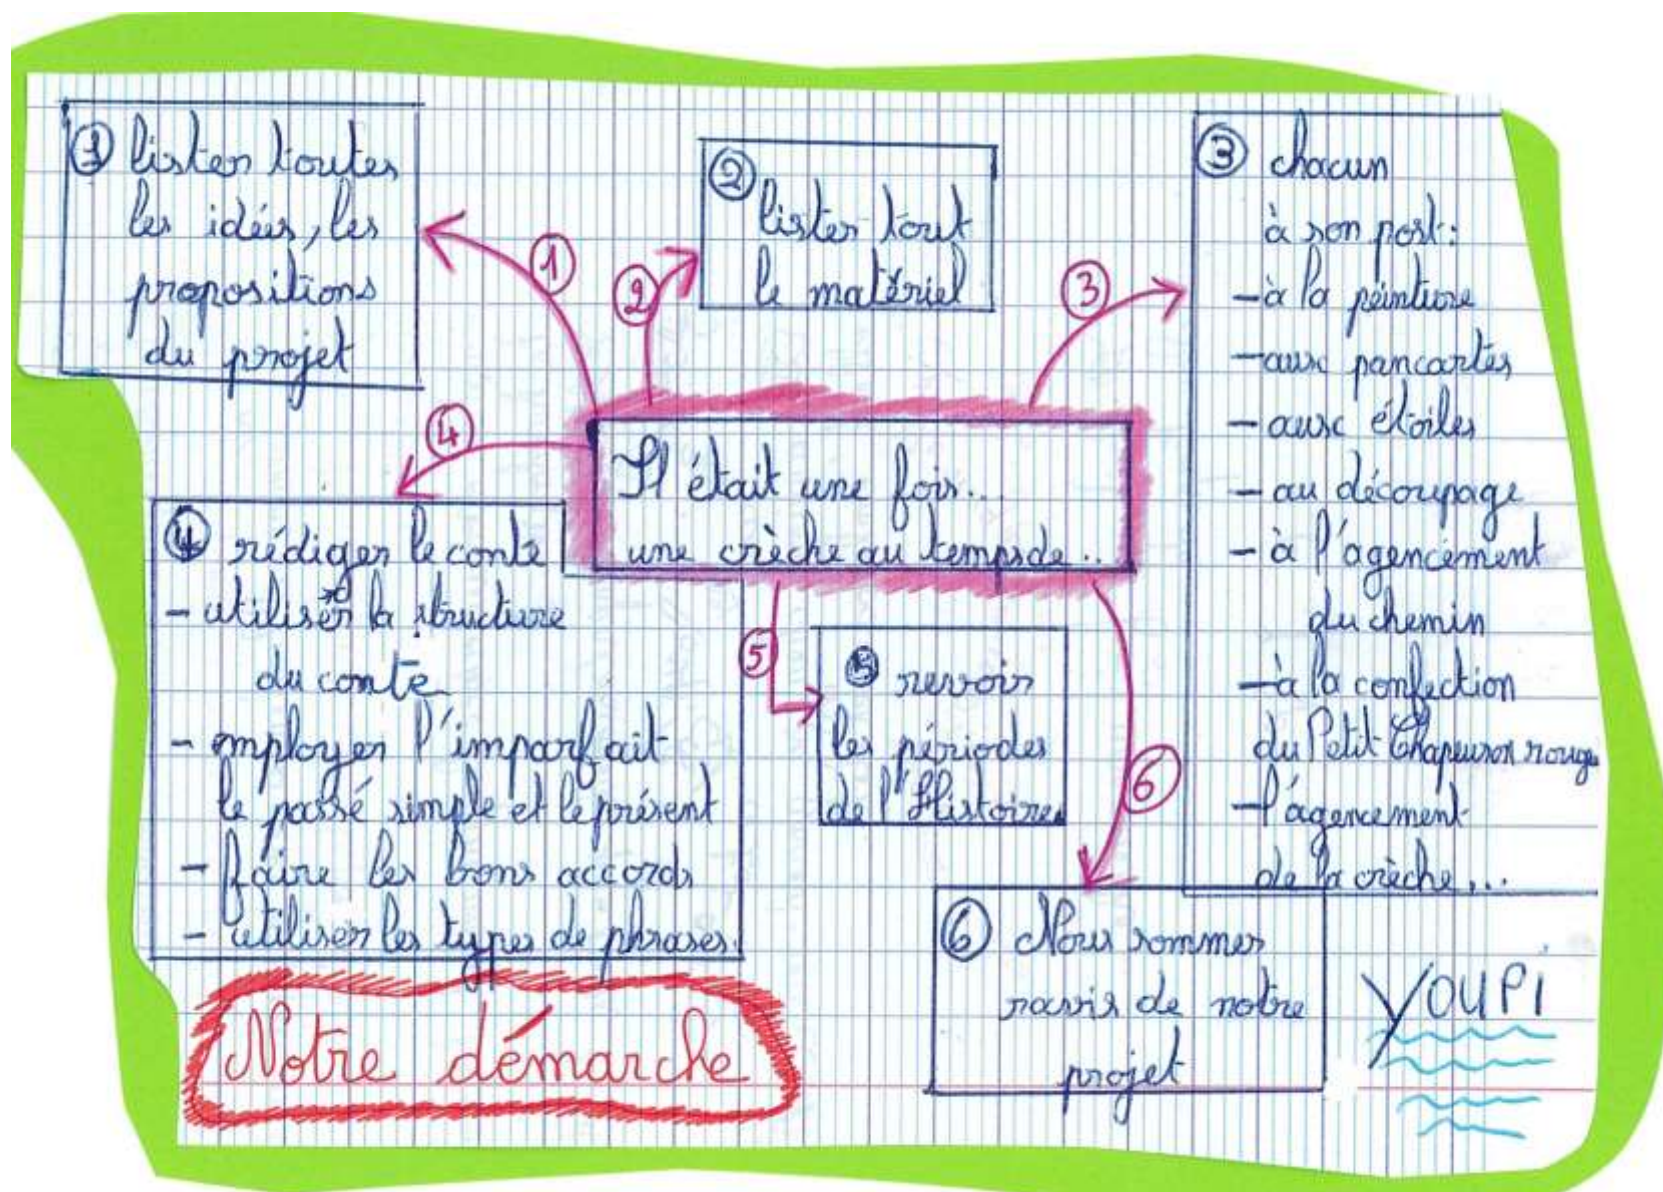 ① lister toutes
les idées, les
propositions
du projet
②
lister tout
le matériel
③ chacun
à son post:
- à la peinture
- aux pancartes
- aux étoiles
- au découpage
- à l'agencement
du chemin
- à la confection
du Petit Chaperon rouge
- l'agencement
de la crèche...
①
②
③
④
Il était une fois...
une crèche au temps de...
④ rédiger le conte
- utiliser la structure
du conte
- employer l'imparfait
le passé simple et le présent
- faire les bons accords
- utiliser les types de phrases.
⑤
⑤ revoir
les périodes
de l'Histoires
⑥
⑥ Nous sommes
ravis de notre
projet
YOUPI
Notre démarche